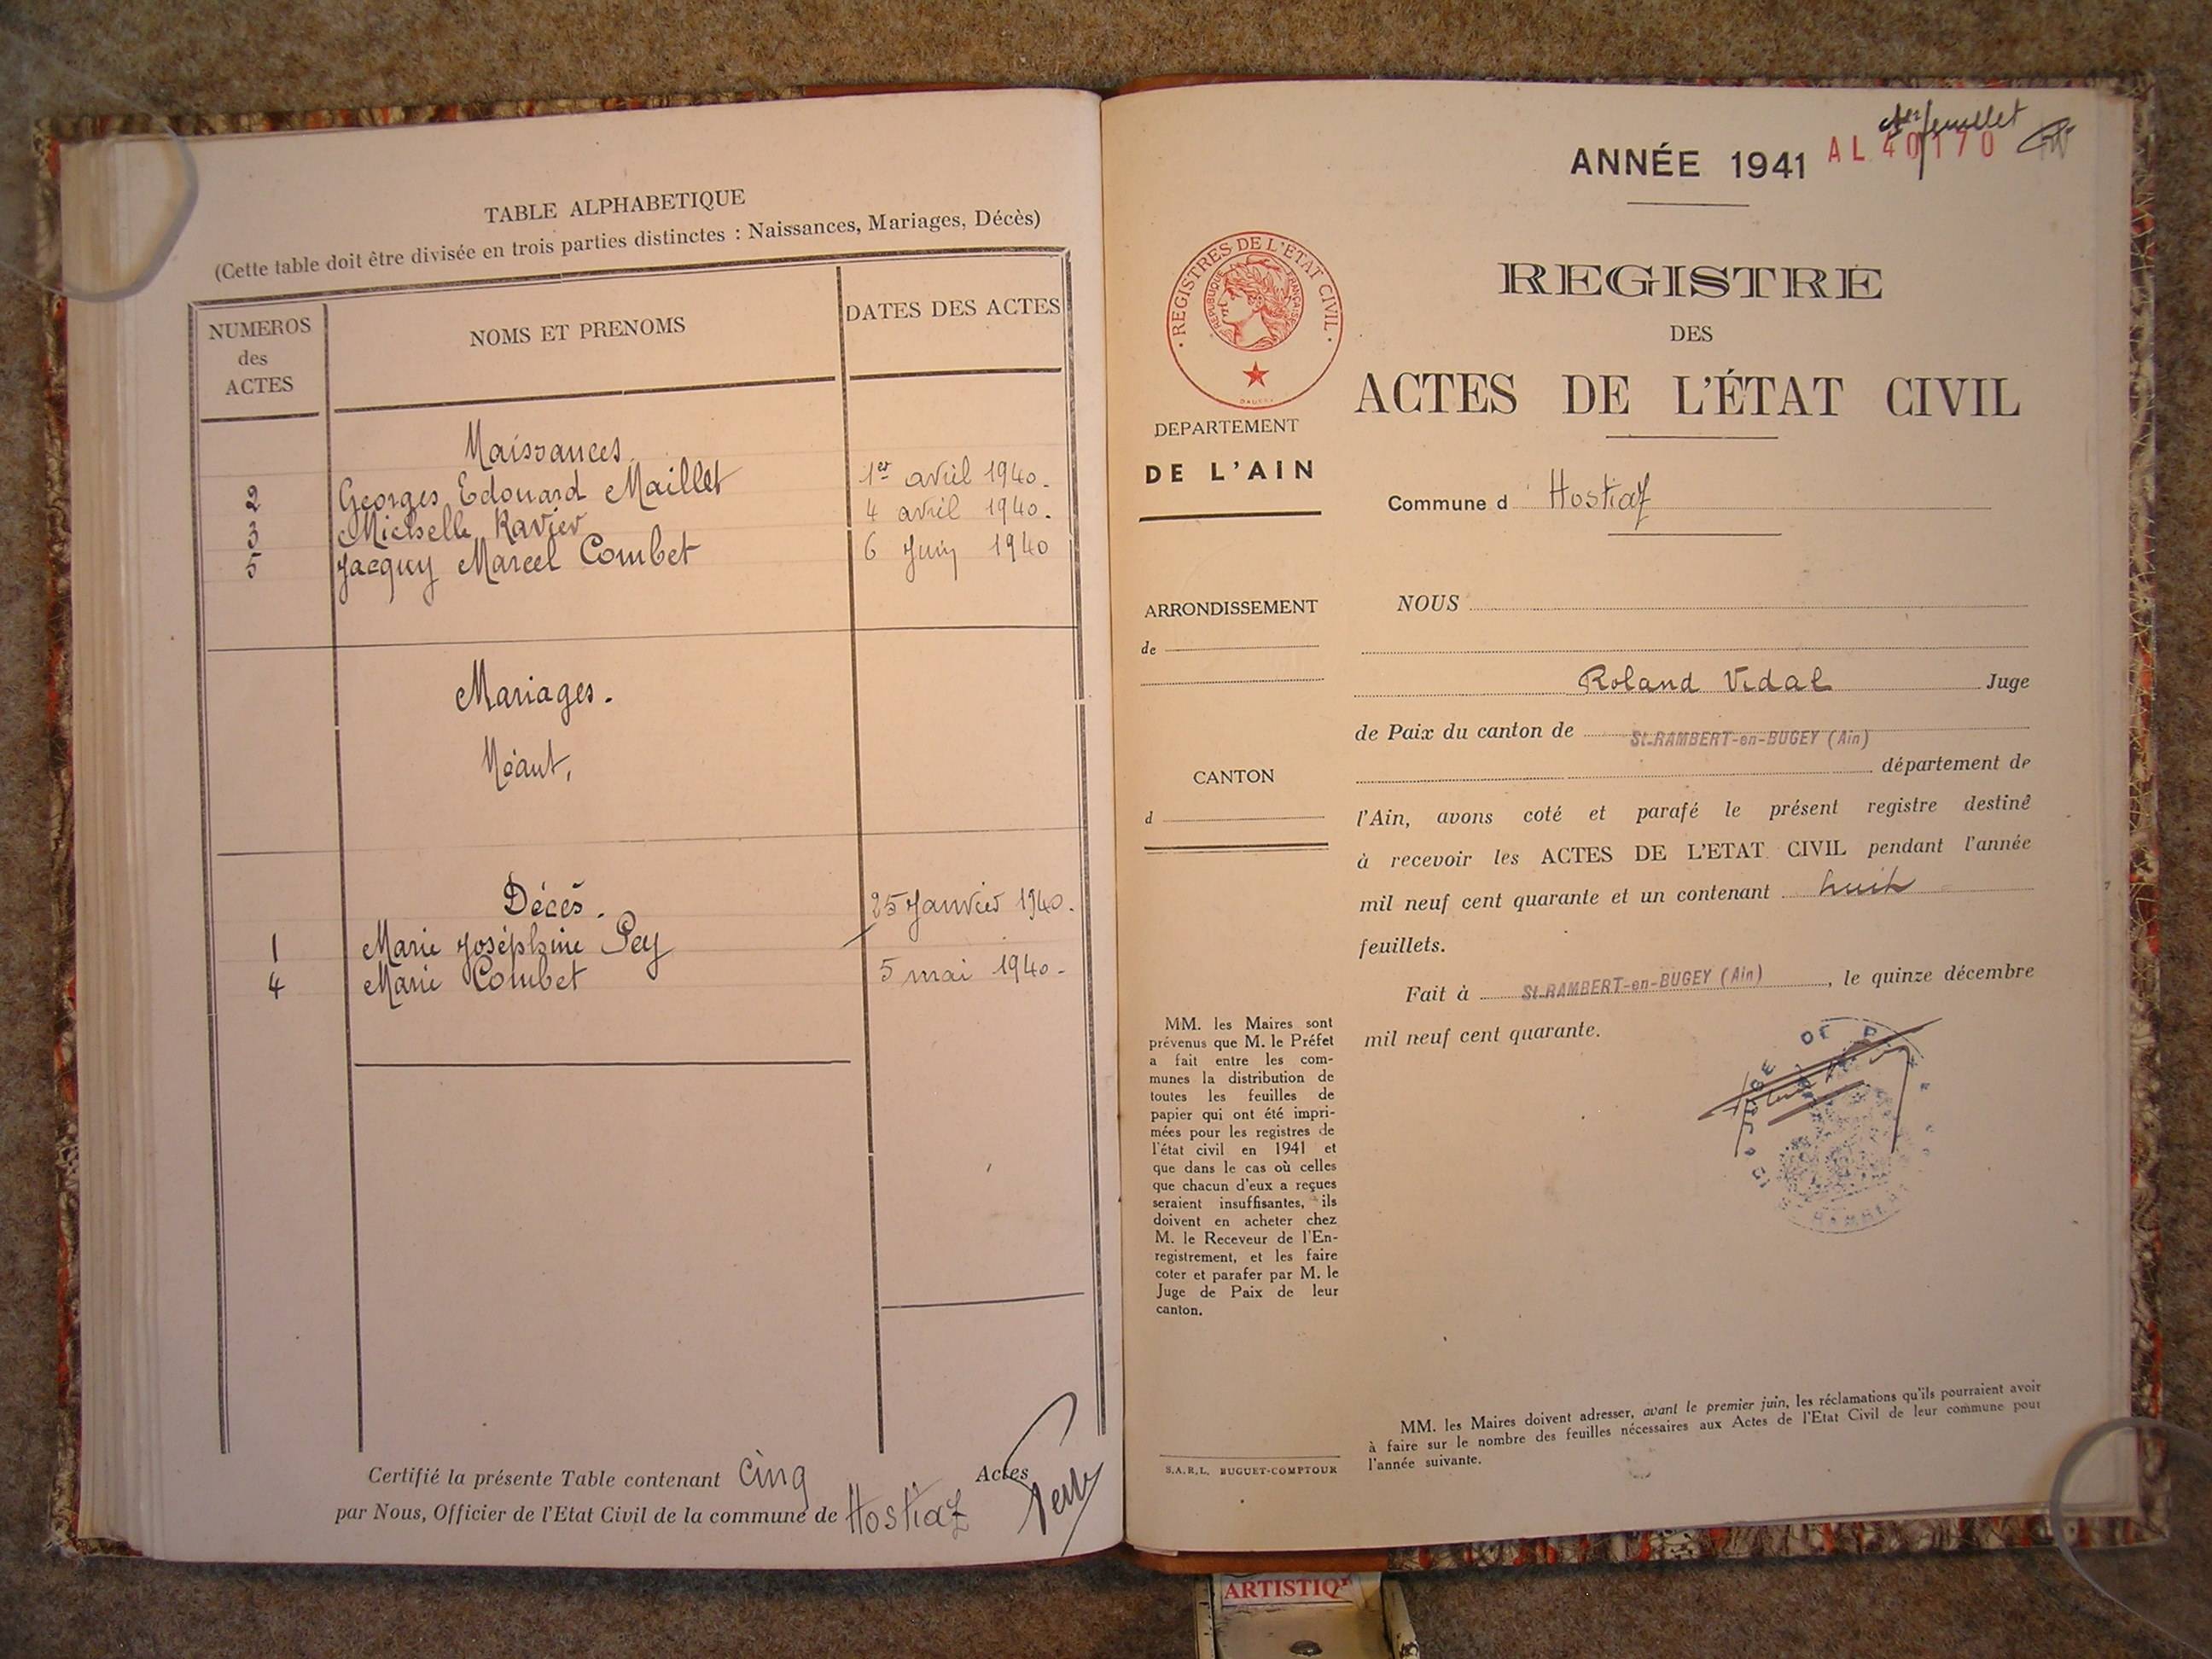 TABLE ALPHABETIQUE
(Cette table doit être divisée en trois parties distinctes : Naissances, Mariages, Décès)
NUMEROS
des
ACTES
NOMS ET PRENOMS
DATES DES ACTES
Naissances.
2 Georges, Edouard Maillet 1er avril 1940.
3 Michelle Ravier 4 avril 1940.
5 Jacquy Marcel Combet 6 Juin 1940
Mariages.
Néant,
Décès.
1 Marie Joséphine Pey 25 Janvier 1940.
4 Marie Combet 5 mai 1940.
Certifié la présente Table contenant cinq Actes
par Nous, Officier de l'Etat Civil de la commune de Hostiaz
1er feuillet
ANNÉE 1941 AL 40170
REGISTRES DE L'ÉTAT CIVIL
RÉPUBLIQUE FRANÇAISE
REGISTRE
DES
ACTES DE L'ÉTAT CIVIL
DEPARTEMENT
DE L'AIN
Commune d Hostiaz
ARRONDISSEMENT
de
CANTON
d
NOUS
Roland Vidal Juge
de Paix du canton de St-RAMBERT-en-BUGEY (Ain)
département de
l'Ain, avons coté et parafé le présent registre destiné
à recevoir les ACTES DE L'ETAT CIVIL pendant l'année
mil neuf cent quarante et un contenant huit
feuillets.
Fait à St-RAMBERT-en-BUGEY (Ain), le quinze décembre
mil neuf cent quarante.
MM. les Maires sont
prévenus que M. le Préfet
a fait entre les com-
munes la distribution de
toutes les feuilles de
papier qui ont été impri-
mées pour les registres de
l'état civil en 1941 et
que dans le cas où celles
que chacun d'eux a reçues
seraient insuffisantes, ils
doivent en acheter chez
M. le Receveur de l'En-
registrement, et les faire
coter et parafer par M. le
Juge de Paix de leur
canton.
S.A.R.L. BUGUET-COMPTOUR
MM. les Maires doivent adresser, avant le premier juin, les réclamations qu'ils pourraient avoir
à faire sur le nombre des feuilles nécessaires aux Actes de l'Etat Civil de leur commune pour
l'année suivante.
ARTISTIQ